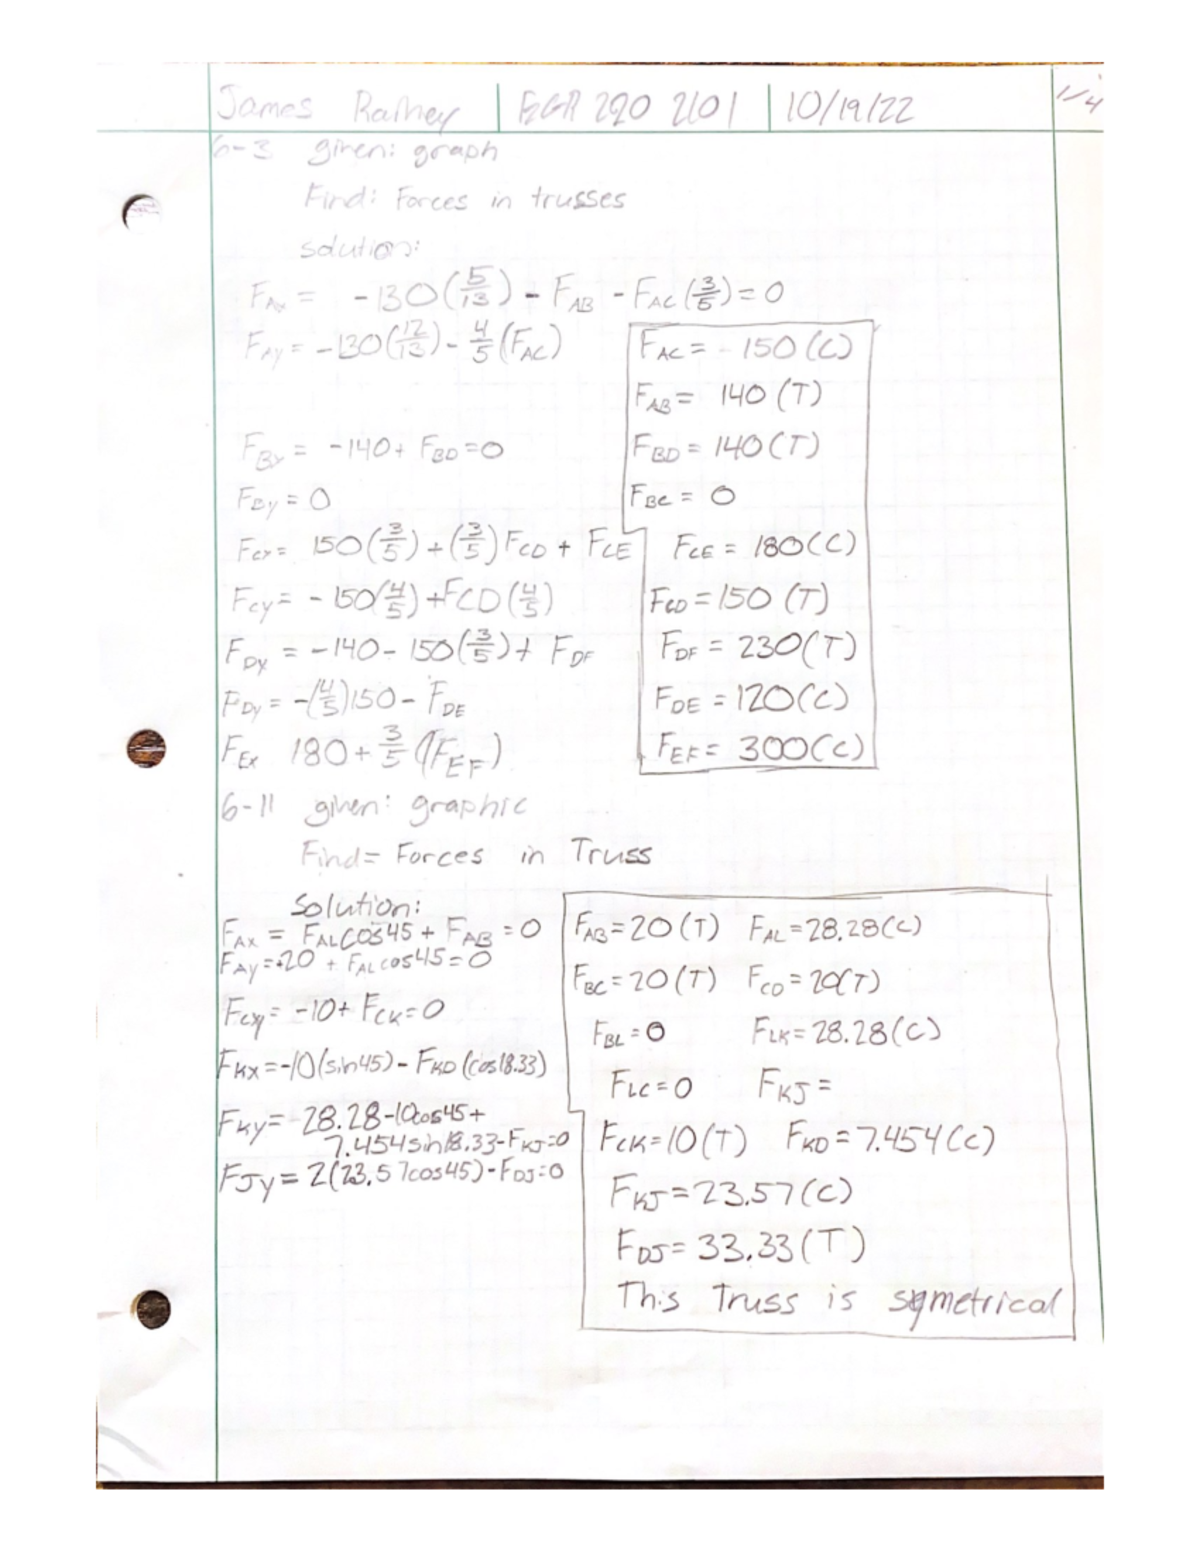 James Rainey | EGR 220 2101 | 10/19/22 1/4
6-3 given: graph
Find: Forces in trusses
solution:
F_Ax = -130(5/13) - F_AB - F_AC(3/5) = 0
F_Ay = -130(12/13) - 4/5(F_AC)
F_AC = -150 (C)
F_AB = 140 (T)
F_Bx = -140 + F_BD = 0
F_BD = 140 (T)
F_By = 0
F_BC = 0
F_Cx = 150(3/5) + (3/5)F_CD + F_CE
F_CE = 180 (C)
F_Cy = -150(4/5) + F_CD(4/5)
F_CD = 150 (T)
F_Dx = -140 - 150(3/5) + F_DF
F_DF = 230 (T)
F_Dy = -(4/5)150 - F_DE
F_DE = 120 (C)
F_Ex 180 + 3/5(F_EF)
F_EF = 300 (C)
6-11 given: graphic
Find = Forces in Truss
Solution:
F_Ax = F_AL cos45 + F_AB = 0
F_Ay = 20 + F_AL cos45 = 0
F_Cy = -10 + F_CK = 0
F_Kx = -10(sin45) - F_KD(cos18.33)
F_Ky = 28.28 - 10cos45 +
7.454sin18.33 - F_KJ = 0
F_Jy = 2(23.57cos45) - F_DJ = 0
F_AB = 20 (T) F_AL = 28.28 (C)
F_BC = 20 (T) F_CD = 20 (T)
F_BL = 0 F_LK = 28.28 (C)
F_LC = 0 F_KJ =
F_CK = 10 (T) F_KD = 7.454 (C)
F_KJ = 23.57 (C)
F_DJ = 33.33 (T)
This Truss is symetrical